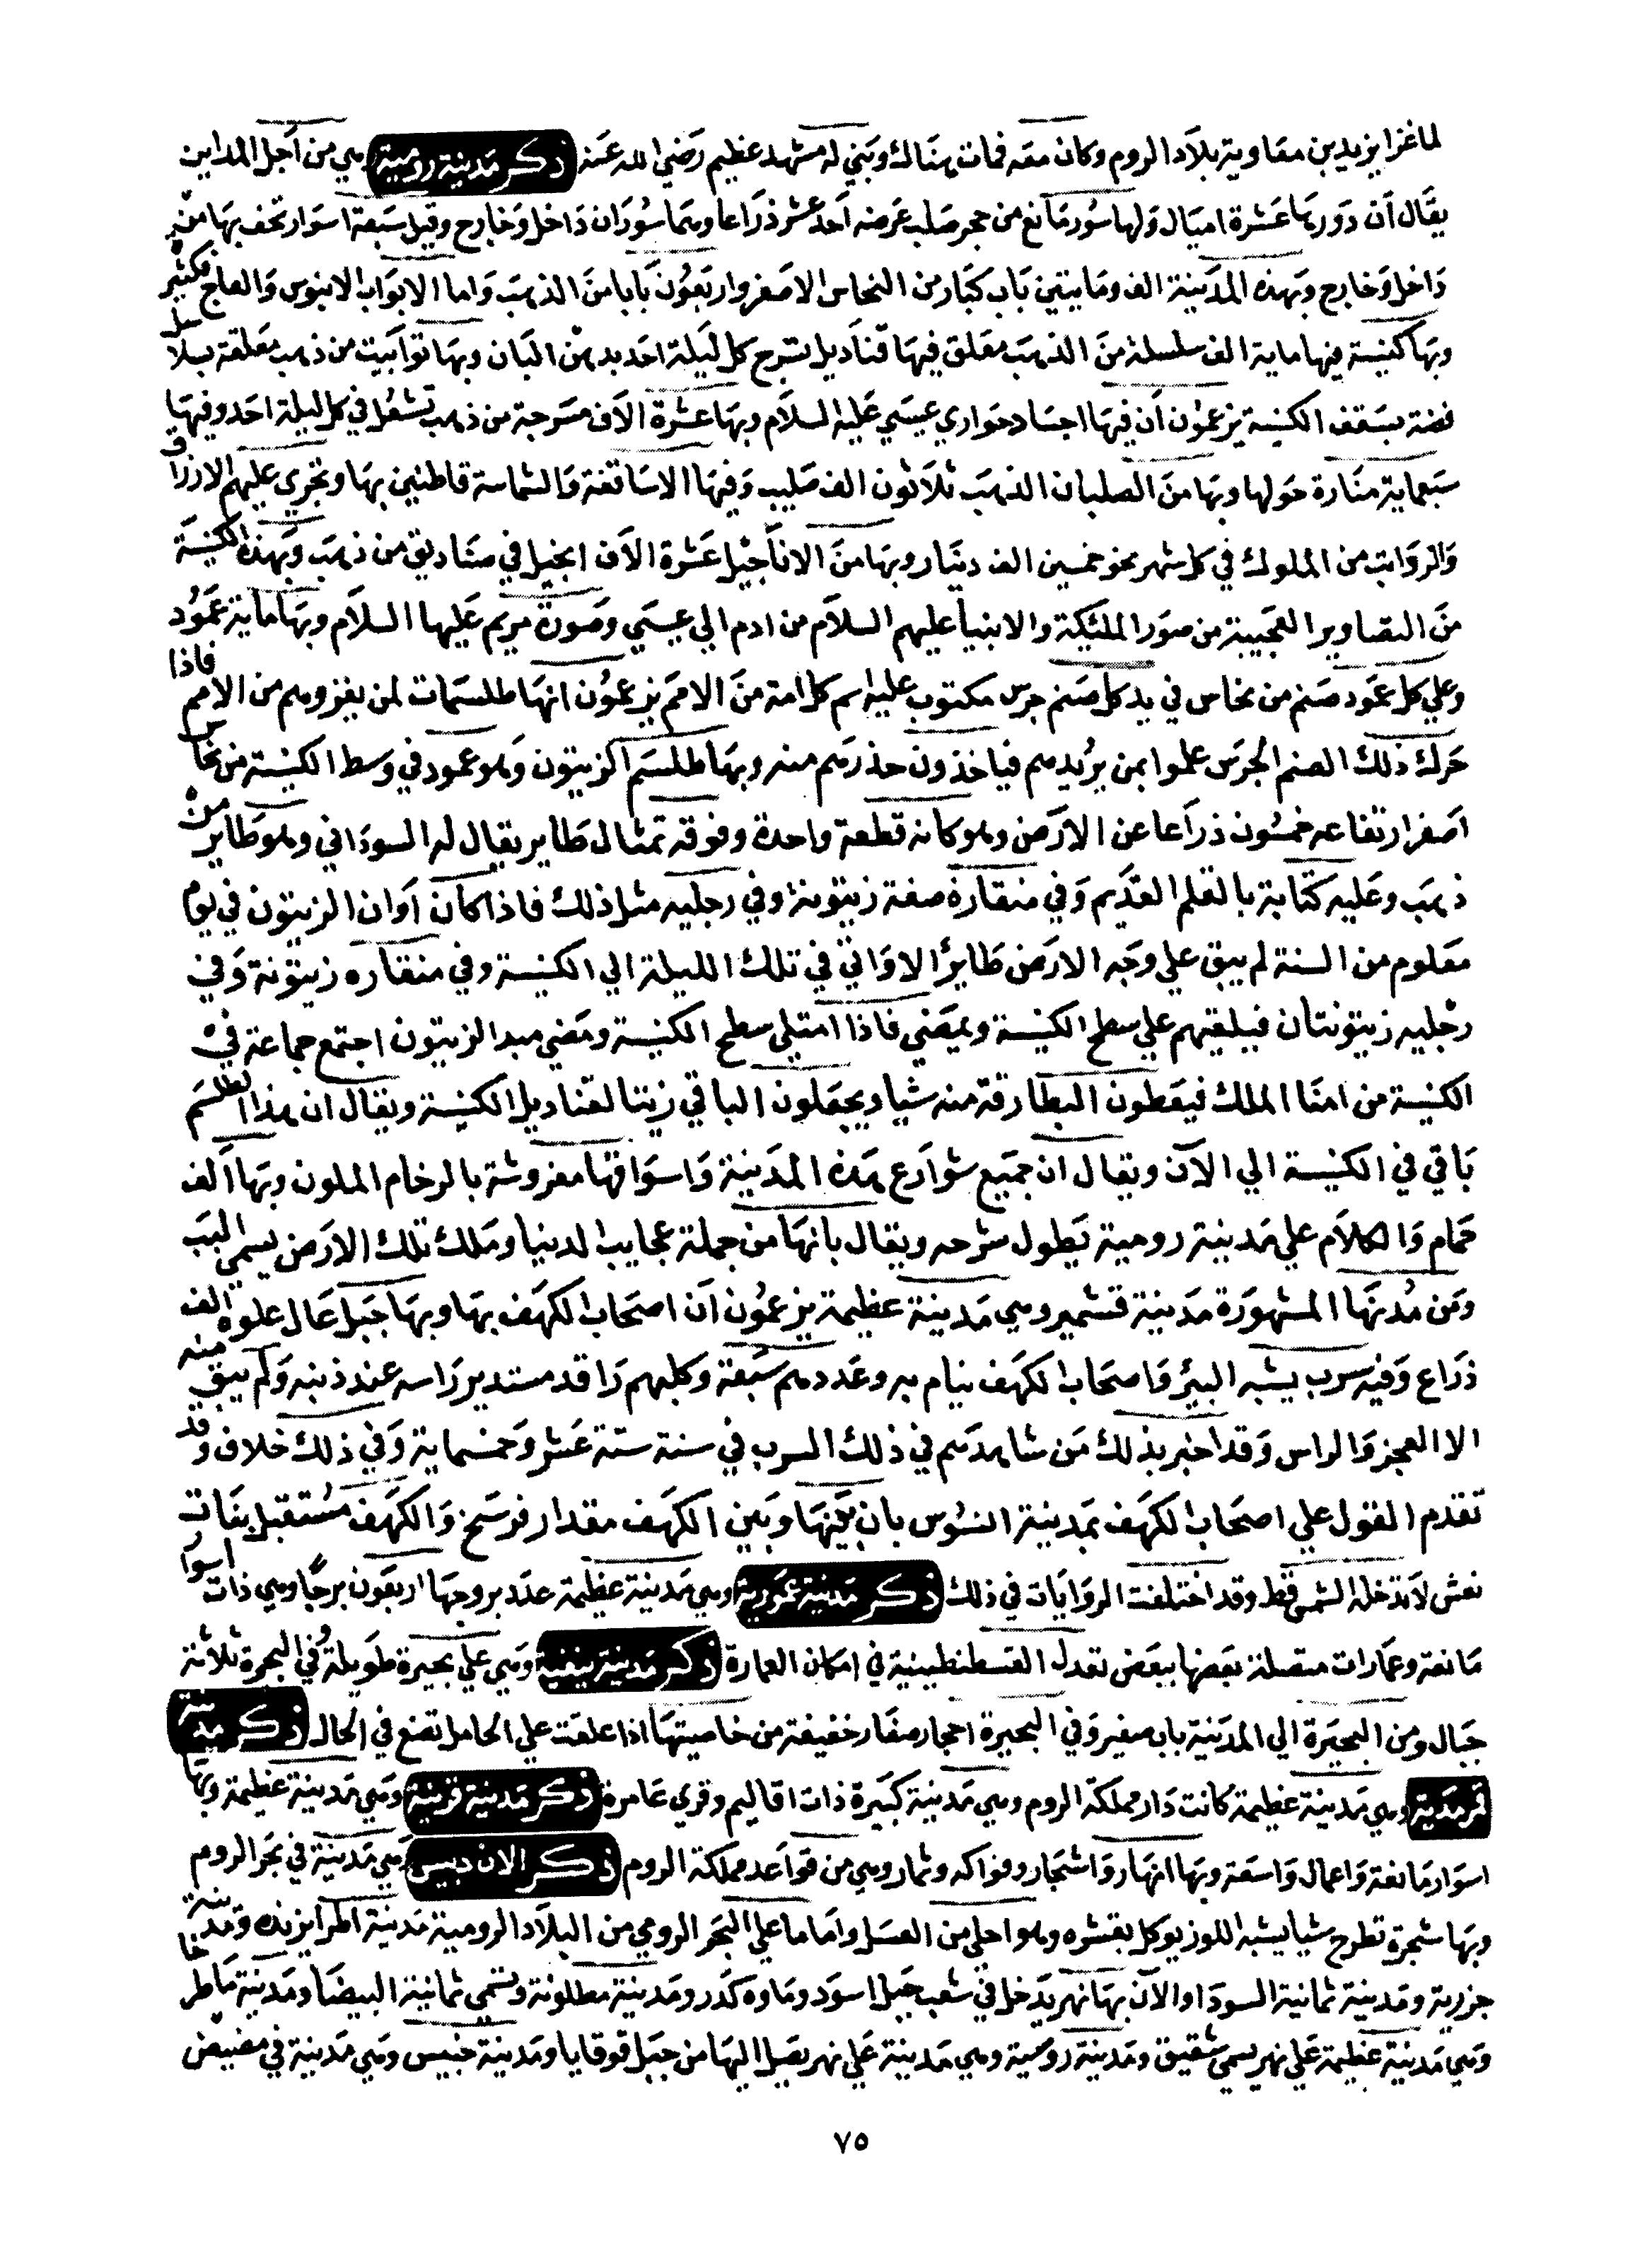 لما غزا يزيد بن معاوية بلاد الروم وكان معه فمات هناك وبني له مشهد عظيم رضي الله عنه ذكر مدينة رومية وهي من أجل المداين
يقال أن دورها عشرة اميال ولها سور مانع من حجر صلب عرضه أحد عشر ذراعا وهما سوران داخل وخارج وقيل سبعة اسوار تحف بها من
داخل وخارج وبهذه المدينة الف ومايتين باب كبار من النحاس الاصفر واربعون بابا من الذهب واما الابواب الابنوس والعاج فكثير
وبها كنيسة فيها ماية الف سلسلة من الذهب معلق فيها قناديل تسرج كل ليلة احد بدهن البان وبها توابيت من ذهب معلقة بسلاسل
فضة بسقف الكنيسة يزعمون أن فيها اجساد حواري عيسي عليه السلام وبها عشرة الاف مسرجة من ذهب تشعل في كل ليلة احد وفيها
سبعماية منارة حولها وبها من الصلبان الذهب ثلاثون الف صليب وفيها الاساقفة والشماسة قاطنين بها وتجري عليهم الارزاق
والرواتب من الملوك في كل شهر نحو خمسين الف دينار وبها من الاناجيل عشرة الاف انجيل في صناديق من ذهب وبهذه الكنيسة
من التصاوير العجيبة من صور الملئكة والانبيا عليهم السلام من ادم الي عيسي وصورة مريم عليها السلام وبها ماية عمود
وعلي كل عمود صنم من نحاس في يد كل صنم جرس مكتوب عليه اسم كل امة من الامم يزعمون انها طلسمات لمن يغزوهم من الامم فاذا
حرك ذلك الصنم الجرس علموا بمن يريدهم فياخذون حذرهم منه وبها طلسم الزيتون وهو عمود في وسط الكنيسة من نحاس
اصفر ارتفاعه خمسون ذراعا عن الارض وهو كانه قطعة واحدة وفوقه تمثال طاير يقال له السوداني وهو طاير من
ذهب وعليه كتابة بالقلم القديم وفي منقاره صفة زيتونة وفي رجليه مثل ذلك فاذا كان أوان الزيتون في يوم
معلوم من السنة لم يبق علي وجه الارض طايرا الا واتي في تلك الليلة الي الكنيسة وفي منقاره زيتونة وفي
رجليه زيتونتان فيلقيهم علي سطح الكنيسة ويمضي فاذا امتلي سطح الكنيسة ومضي مبدا الزيتون اجتمع جماعة في
الكنيسة من امنا الملك فيعطون البطارقة منه شيا ويجعلون الباقي زيتا لقناديل الكنيسة ويقال ان هذا الطلسم
باقي في الكنيسة الي الآن ويقال ان جميع شوارع هذه المدينة واسواقها مفروشة بالرخام الملون وبها ألف
حمام والكلام علي مدينة رومية يطول شرحه ويقال بانها من جملة عجايب الدنيا وملك تلك الارض يسمي البب
ومن مدنها المشهورة مدينة قشمير وهي مدينة عظيمة يزعمون أن اصحاب الكهف بها وبها جبل عال علوه الف
ذراع وفيه سرب يشبه البير واصحاب الكهف نيام به وعددهم سبعة وكلبهم راقد مستدير راسه عند ذنبه ولم يبق منه
الا العجز والراس وقد اخبر بذلك من شاهدهم في ذلك السرب في سنة ستة عشر وخمسماية وفي ذلك خلاف وقد
تقدم القول علي اصحاب الكهف بمدينة السوس بان بينها وبين الكهف مقدار فرسخ والكهف مستقبل بنات
نعش لا تدخله الشمس قط وقد اختلفت الروايات في ذلك ذكر مدينة عمورية وهي مدينة عظيمة عدد بروجها اربعون برجا وهي ذات اسوا
مانعة وعمارات متصلة بعضها ببعض تعدل القسطنطينية في امكان العمارة ذكر مدينة نيقية وهي علي بحيرة طويلة وفي البحرة ثلاثة
جبال ومن البحيرة الي المدينة باب صغير وفي البحيرة احجار صغار خفيفة من خاصيتها اذا علقت علي الحامل تضع في الحال ذكر مدينة
وهي مدينة عظيمة كانت دار مملكة الروم وهي مدينة كبيرة ذات اقاليم وقري عامرة ذكر مدينة قونية وهي مدينة عظيمة وبها
اسوار مانعة واعمال واسعة وبها انهار واشجار وفواكه وثمار وهي من قواعد مملكة الروم ذكر وهي مدينة في بحر الروم
وبها شجرة تطرح شيا يشبه اللوز يوكل بقشره وهو احلي من العسل واما ما علي البحر الرومي من البلاد الرومية مدينة اطرابزنده ومدينة
جزرية ومدينة ثمانية السودا والآن بها نهر يدخل في شعب جبل اسود وماوه كدر ومدينة مطلونة وتسمي ثمانية البيضا ومدينة ماطرخا
وهي مدينة عظيمة علي نهر يسمي شقيق ومدينة روسية وهي مدينة علي نهر يصل اليها من جبل قوقايا ومدينة خبيس وهي مدينة في مغيض
٧٥